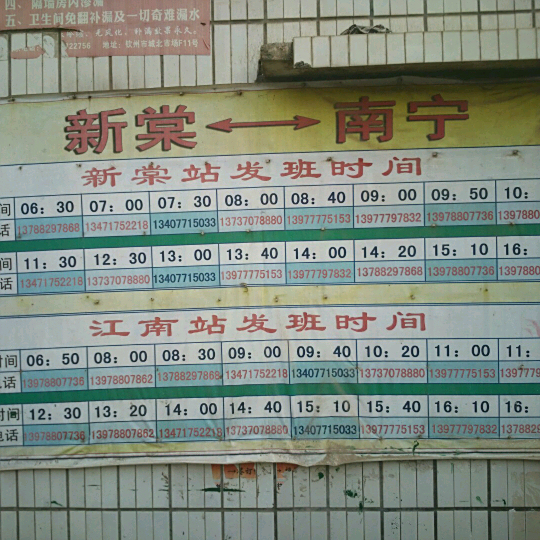 四、隔墙房内渗漏
五、卫生间免翻补漏及一切奇难漏水
22756 地址：钦州市城北市场F11号
新棠 ↔ 南宁
新棠站发班时间
间 06：30 07：00 07：30 08：00 08：40 09：00 09：50 10：
话 13788297868 13471752218 13407715033 13737078880 13977775153 13977797832 13978807736 1397880
间 11：30 12：30 13：00 13：40 14：00 14：20 15：10 16：
话 13471752218 13737078880 13407715033 13977775153 13977797832 13788297868 13978807736 1397880
江南站发班时间
时间 06：50 08：00 08：30 09：00 09：40 10：20 11：00 11：
电话 13978807736 13978807862 13788297868 13471752218 13407715033 13737078880 13977775153 1397779
时间 12：30 13：20 14：00 14：40 15：10 15：40 16：10 16：
电话 13978807736 13978807862 13471752218 13737078880 13407715033 13977775153 13977797832 1378829